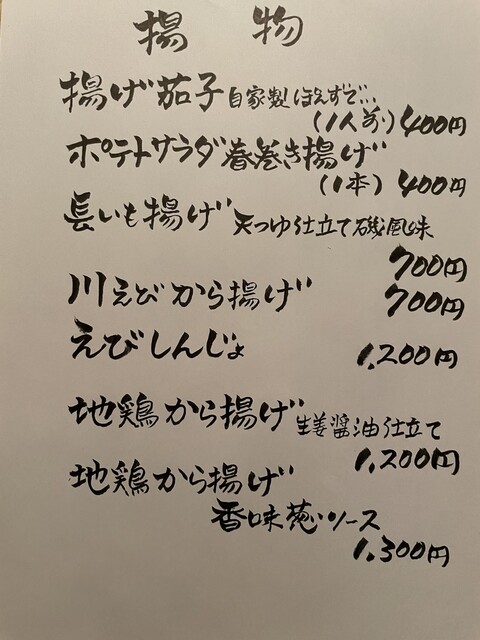 揚物
揚げ茄子 自家製ぽん酢で...
(1人前) 400円
ポテトサラダ春巻き揚げ
(1本) 400円
長いも揚げ 天つゆ仕立て磯風味
700円
川えびから揚げ 700円
えびしんじょ 1,200円
地鶏から揚げ 生姜醤油仕立て
1,200円
地鶏から揚げ
香味葱ソース
1,300円